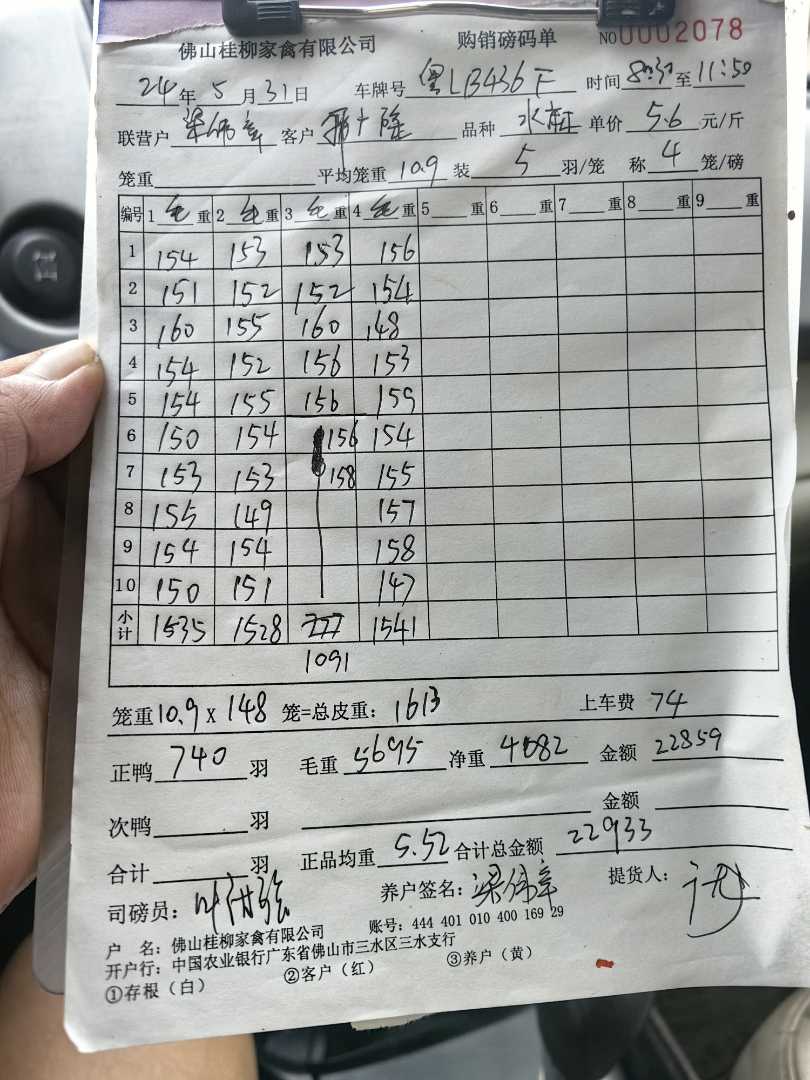 佛山桂柳家禽有限公司 购销磅码单 NO 0002078
24年5月31日 车牌号 粤LB436F 时间 8:30至11:50
联营户 梁伟章 客户 品种 水 单价 5.6 元/斤
笼重 平均笼重 10.9 装 5 羽/笼 称 4 笼/磅
编号 1 毛重 2 毛重 3 毛重 4 毛重 5 重 6 重 7 重 8 重 9 重
1 154 153 153 156
2 151 152 152 154
3 160 155 160 148
4 154 152 156 153
5 154 155 156 159
6 150 154 156 154
7 153 153 158 155
8 155 149 157
9 154 154 158
10 150 151 147
小计 1535 1528 1541
1091
笼重10.9 x 148 笼=总皮重：1613 上车费 74
正鸭 740 羽 毛重 5695 净重 4082 金额 22859
次鸭 羽 金额
合计 羽 正品均重 5.52 合计总金额 22933
司磅员： 养户签名：梁伟章 提货人：
户 名：佛山桂柳家禽有限公司 账号：444 401 010 400 169 29
开户行：中国农业银行广东省佛山市三水区三水支行
①存根（白） ②客户（红） ③养户（黄）